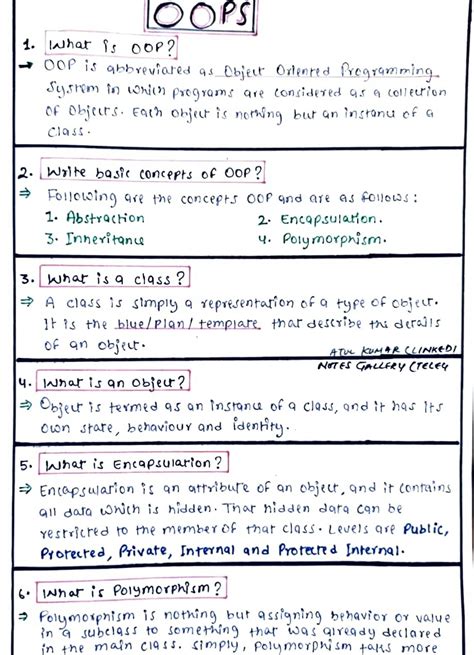 OOPS
1. What is OOP?
→ OOP is abbreviated as Object Oriented Programming
System in which programs are considered as a collection
of Objects. Each object is nothing but an instance of a
Class.
2. Write basic concepts of OOP?
⇒ Following are the concepts OOP and are as follows:
1. Abstraction 2. Encapsulation.
3. Inheritance 4. Polymorphism.
3. What is a class?
⇒ A class is simply a representation of a type of object.
It is the blue/plan/template that describe the details
of an object.
ATUL KUMAR (LINKEDI
NOTES GALLERY (TELEG
4. What is an Object?
⇒ Object is termed as an instance of a class, and it has its
own state, behaviour and identity.
5. What is Encapsulation?
⇒ Encapsulation is an attribute of an object, and it contains
all data which is hidden. That hidden data can be
restricted to the member of that class. Levels are Public,
Protected, Private, Internal and Protected Internal.
6. What is Polymorphism?
⇒ Polymorphism is nothing but assigning behavior or value
in a subclass to something that was already declared
in the main class. Simply, polymorphism takes more